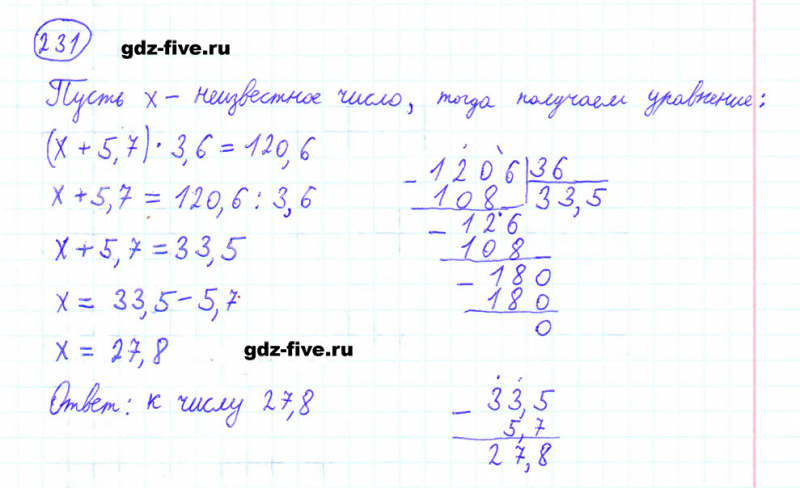 231 gdz-five.ru
Пусть x – неизвестное число, тогда получаем уравнение:
(x + 5,7) · 3,6 = 120,6
x + 5,7 = 120,6 : 3,6
x + 5,7 = 33,5
x = 33,5 – 5,7
x = 27,8
gdz-five.ru
Ответ: к числу 27,8
– 1206 | 36
108 33,5
– 126
108
– 180
180
0
– 33,5
5,7
27,8